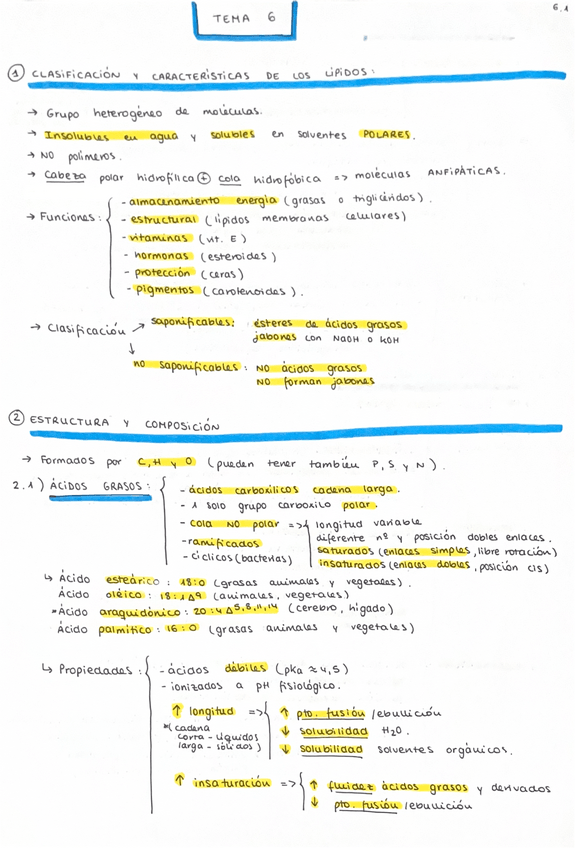 6.1
TEMA 6
① CLASIFICACIÓN Y CARACTERÍSTICAS DE LOS LÍPIDOS:
→ Grupo heterogéneo de moléculas.
→ Insolubles en agua y solubles en solventes POLARES.
→ NO polímeros.
→ Cabeza polar hidrofílica ⊕ cola hidrofóbica => moléculas ANFIPÁTICAS.
→ Funciones:
- almacenamiento energía (grasas o triglicéridos).
- estructural (lípidos membranas celulares)
- vitaminas (vit. E)
- hormonas (esteroides)
- protección (ceras)
- pigmentos (carotenoides).
→ Clasificación
↗ saponificables: ésteres de ácidos grasos
jabones con NaOH o KOH
↓
no saponificables: NO ácidos grasos
NO forman jabones
② ESTRUCTURA Y COMPOSICIÓN
→ Formados por C, H y O (pueden tener también P, S y N).
2.1) ÁCIDOS GRASOS:
- ácidos carboxílicos cadena larga.
- 1 solo grupo carboxilo polar.
- cola NO polar => longitud variable
diferente nº y posición dobles enlaces.
saturados (enlaces simples, libre rotación)
insaturados (enlaces dobles, posición cis)
- ramificados
- cíclicos (bacterias)
↳ Ácido esteárico: 18:0 (grasas animales y vegetales).
Ácido oléico: 18:1Δ9 (animales, vegetales)
*Ácido araquidónico: 20:4 Δ5,8,11,14 (cerebro, hígado)
Ácido palmítico: 16:0 (grasas animales y vegetales)
↳ Propiedades:
- ácidos débiles (pka ≈ 4,5)
- ionizados a pH fisiológico.
↑ longitud => ↑ pto. fusión /ebullición
↓ solubilidad H₂O.
↓ solubilidad solventes orgánicos.
*(cadena
corta - líquidos
larga - sólidos)
↑ insaturación => ↑ fluidez ácidos grasos y derivados
↓ pto. fusión /ebullición